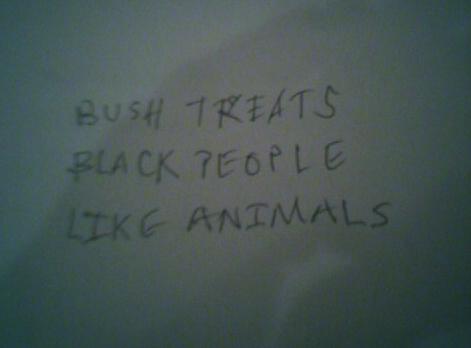 BUSH TREATS
BLACK PEOPLE
LIKE ANIMALS